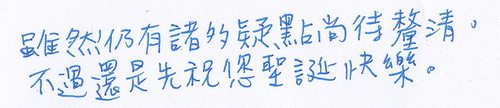 雖然仍有諸多疑點尚待釐清。
不過還是先祝您聖誕快樂。